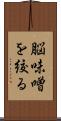 脳味噌を絞る